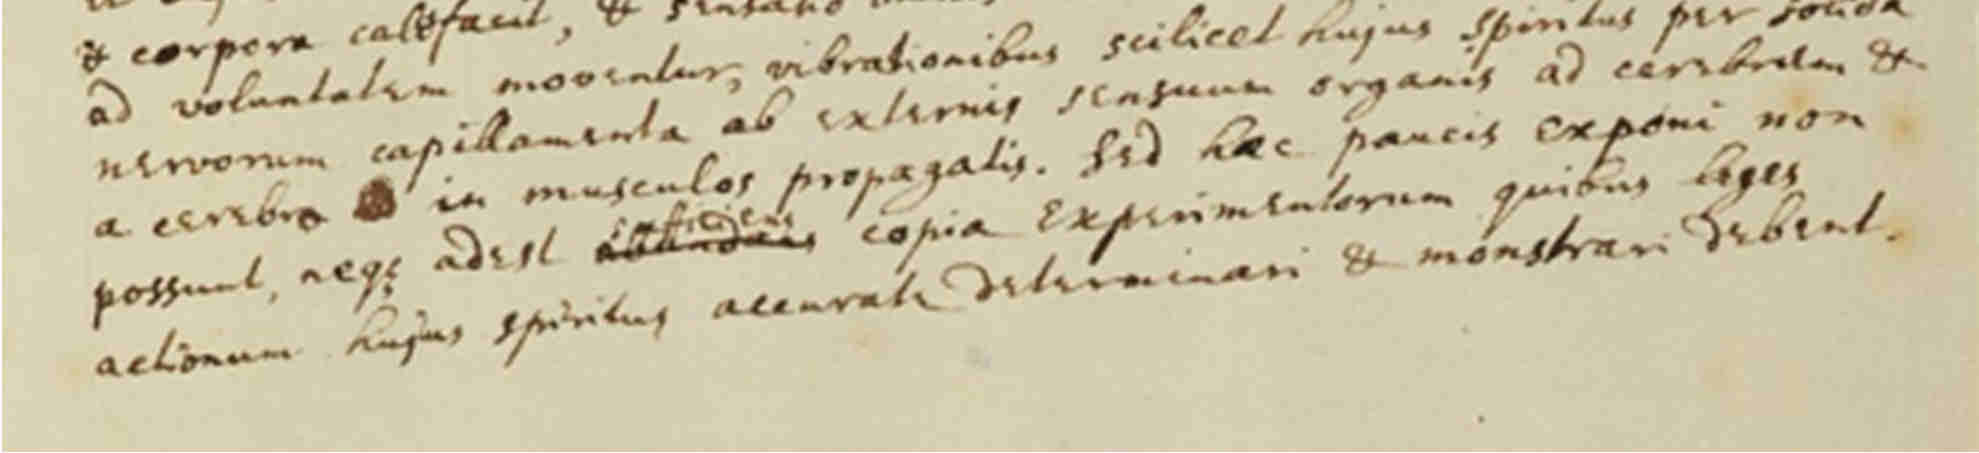 & corpora calefacit, &
ad voluntatem moventur, vibrationibus scilicet hujus spiritus per solida
nervorum capillamenta ab externis sensuum organis ad cerebrum &
a cerebro in musculos propagatis. Sed hæc paucis exponi non
possunt, neqꝫ adest sufficiens copia Experimentorum quibus leges
actionum hujus spiritus accurate determinari & monstrari debent.